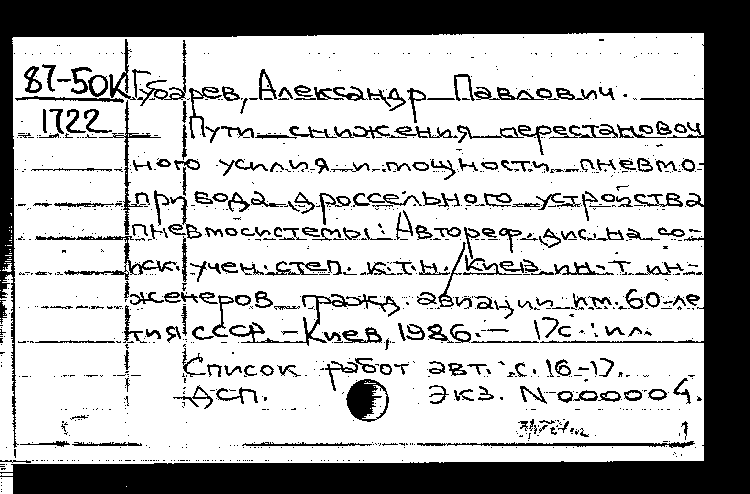 87-50К Губарев, Александр Павлович.
1722 Пути снижения перестановоч
ного усилия и мощности пневмо-
привода дроссельного устройства
пневмосистемы: Автореф. дис. на со-
иск. учен. степ. к.т.н. / Киев. ин-т ин-
женеров гражд. авиации им. 60-ле
тия СССР. – Киев, 1986. – 17с.: ил.
Список работ авт.: с. 16-17.
ДСП. Экз. N 000004.
1